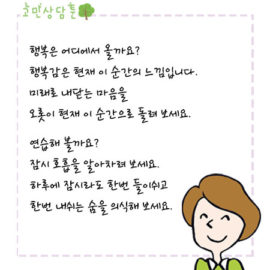 고민상담톡
행복은 어디에서 올까요?
행복감은 현재 이 순간의 느낌입니다.
미래로 내닫는 마음을
오롯이 현재 이 순간으로 돌려 보세요.
연습해 볼까요?
잠시 호흡을 알아차려 보세요.
하루에 잠시라도 한번 들이쉬고
한번 내쉬는 숨을 의식해 보세요.